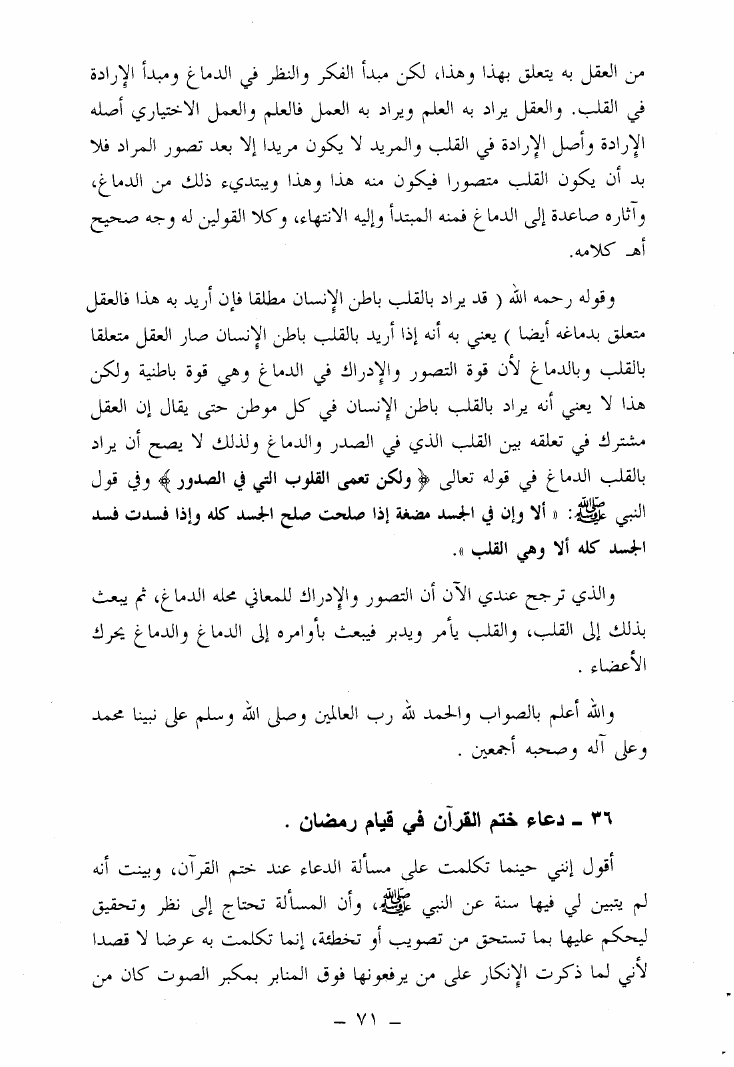 من العقل به يتعلق بهذا وهذا، لكن مبدأ الفكر والنظر في الدماغ ومبدأ الإرادة
في القلب. والعقل يراد به العلم ويراد به العمل فالعلم والعمل الاختياري أصله
الإرادة وأصل الإرادة في القلب والمريد لا يكون مريدا إلا بعد تصور المراد فلا
بد أن يكون القلب متصورا فيكون منه هذا وهذا ويبتديء ذلك من الدماغ،
وآثاره صاعدة إلى الدماغ فمنه المبتدأ وإليه الانتهاء، وكلا القولين له وجه صحيح
أهـ كلامه.
وقوله رحمه الله ( قد يراد بالقلب باطن الإنسان مطلقا فإن أريد به هذا فالعقل
متعلق بدماغه أيضا ) يعني به أنه إذا أريد بالقلب باطن الإنسان صار العقل متعلقا
بالقلب وبالدماغ لأن قوة التصور والإدراك في الدماغ وهي قوة باطنية ولكن
هذا لا يعني أنه يراد بالقلب باطن الإنسان في كل موطن حتى يقال إن العقل
مشترك في تعلقه بين القلب الذي في الصدر والدماغ ولذلك لا يصح أن يراد
بالقلب الدماغ في قوله تعالى ﴿ ولكن تعمى القلوب التي في الصدور ﴾ وفي قول
النبي ﷺ: « ألا وإن في الجسد مضغة إذا صلحت صلح الجسد كله وإذا فسدت فسد
الجسد كله ألا وهي القلب ».
والذي ترجح عندي الآن أن التصور والإدراك للمعاني محله الدماغ، ثم يبعث
بذلك إلى القلب، والقلب يأمر ويدبر فيبعث بأوامره إلى الدماغ والدماغ يحرك
الأعضاء .
والله أعلم بالصواب والحمد لله رب العالمين وصلى الله وسلم على نبينا محمد
وعلى آله وصحبه أجمعين .
٣٦ ـ دعاء ختم القرآن في قيام رمضان .
أقول إنني حينما تكلمت على مسألة الدعاء عند ختم القرآن، وبينت أنه
لم يتبين لي فيها سنة عن النبي ﷺ، وأن المسألة تحتاج إلى نظر وتحقيق
ليحكم عليها بما تستحق من تصويب أو تخطئة، إنما تكلمت به عرضا لا قصدا
لأني لما ذكرت الإنكار على من يرفعونها فوق المنابر بمكبر الصوت كان من
ـ ٧١ ـ